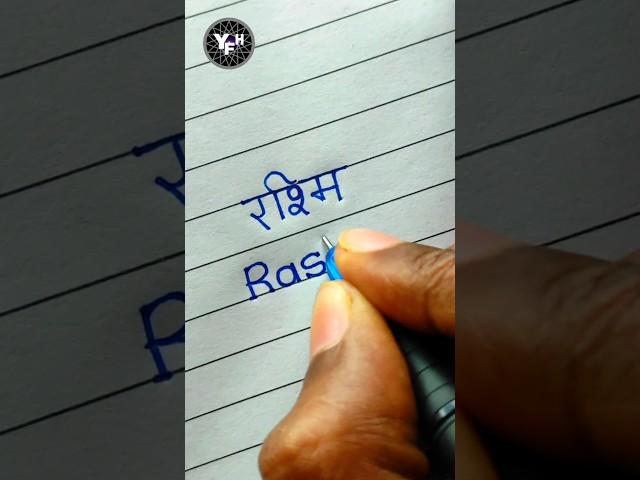 YFH
रश्मि
Ras